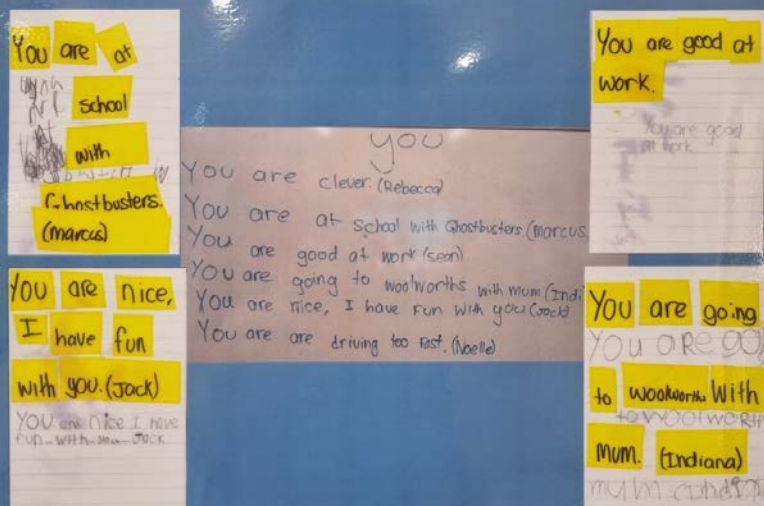 You are at
school
with
Ghostbusters.
(marcus)
You are nice,
I have fun
with you. (Jack)
YOU are nice I have
fun with you Jack
you
You are clever. (Rebecca)
You are at school with Ghostbusters (marcus.
You are good at work (sean)
You are going to woolworths with mum (Indi
You are nice, I have fun with you (Jack)
You are are driving too fast. (Noelle)
You are good at
work.
You are good
at work
You are going
You are go
to woolworths With
to woolworth
mum. (Indiana)
mum